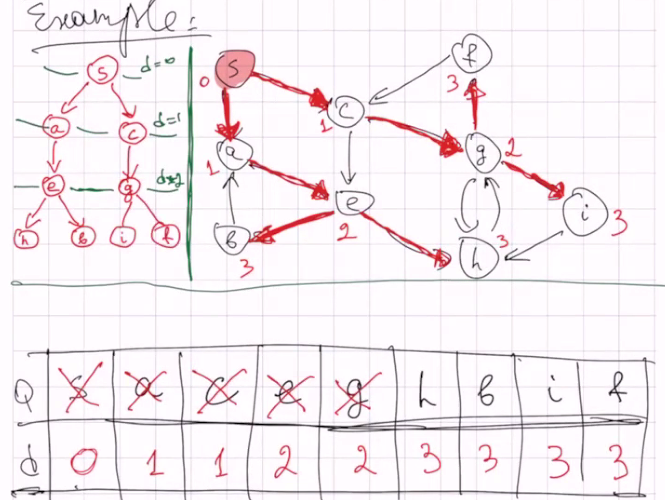 Example:
s d=0
a c d=1
e g d=2
h b i f
s 0
f 3
c 1
a 1
g 2
e 2
i 3
b 3
h 3
Q s a c e g h b i f
d 0 1 1 2 2 3 3 3 3